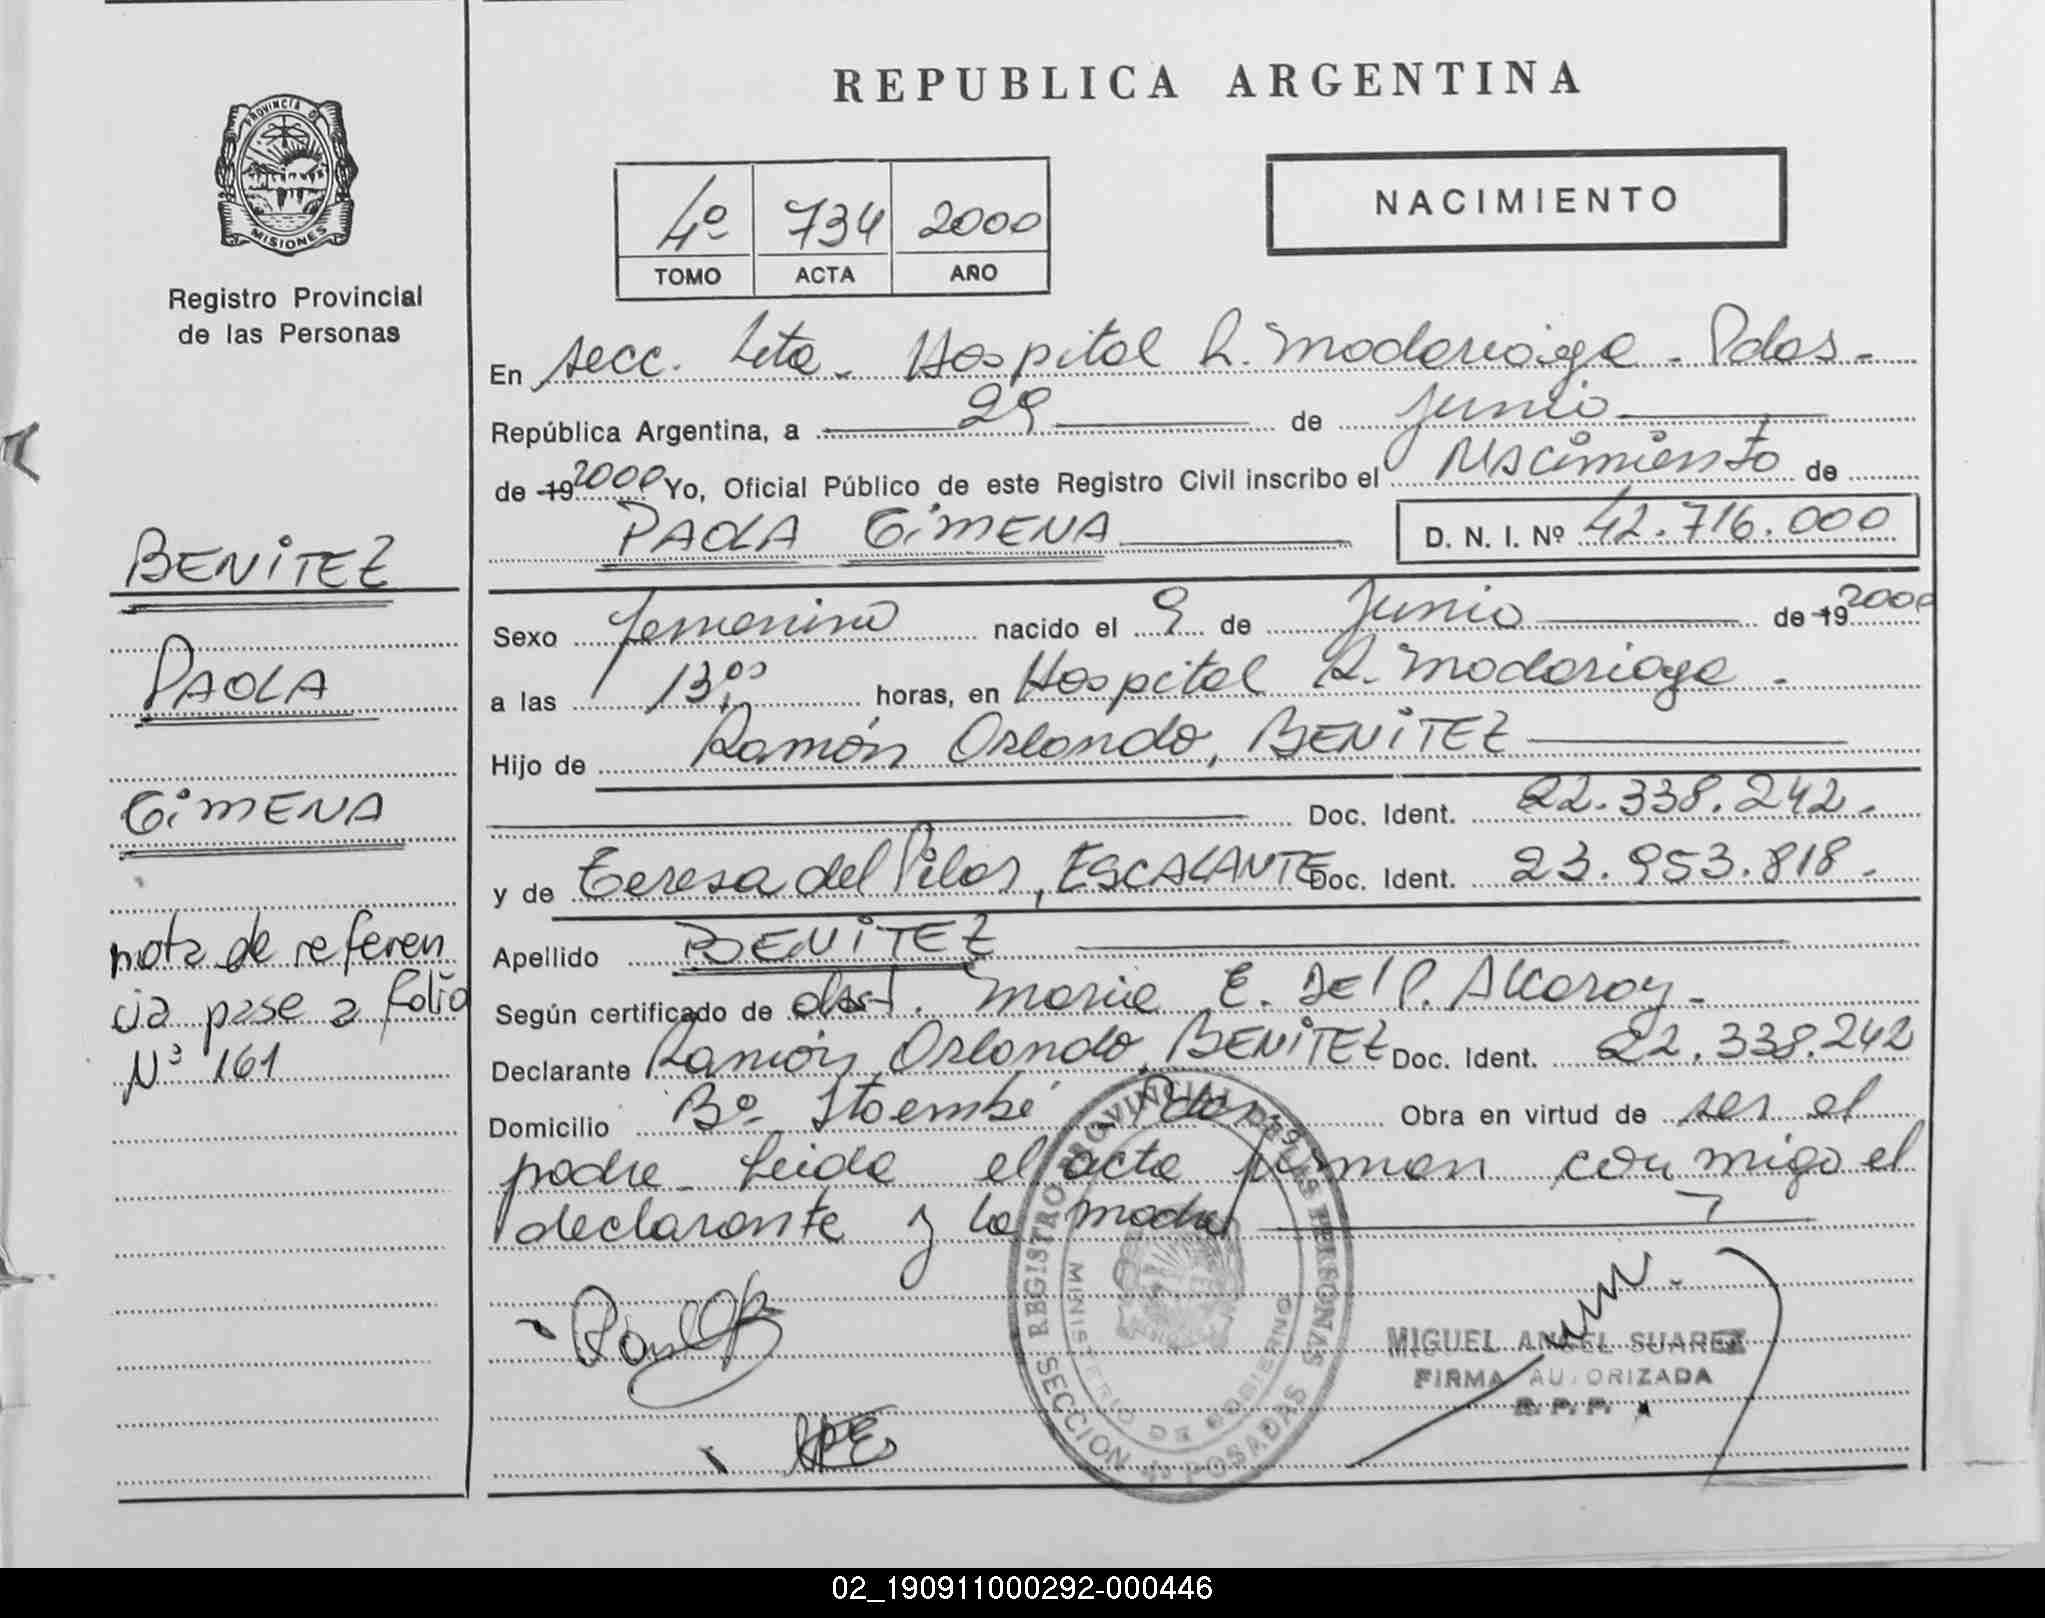 REPUBLICA ARGENTINA
PROVINCIA DE
MISIONES
Registro Provincial
de las Personas
NACIMIENTO
4º 734 2000
TOMO ACTA AÑO
En secc. 4ta. Hospital R. Madariaga - Pdas.
República Argentina, a 29 de junio
de 19 2000 Yo, Oficial Público de este Registro Civil inscribo el Nacimiento de
PAOLA GIMENA D. N. I. Nº 42.716.000
BENITEZ
PAOLA
GIMENA
nota de referen
cia pase a folio
Nº 161
Sexo femenino nacido el 9 de Junio de 19 2000
a las 13ºº horas, en Hospital R. Madariaga.
Hijo de Ramón Orlando, BENITEZ
Doc. Ident. 22.338.242.
y de Teresa del Pilar, ESCALANTE Doc. Ident. 23.953.818.
Apellido BENITEZ
Según certificado de obst. Maria E. Del P. Alcaroz.
Declarante Ramón Orlando, BENITEZ Doc. Ident. 22.338.242
Domicilio Bº Itaembé Pdas. Obra en virtud de ser el
padre. Leida el acta firman conmigo el
declarante y la madre
REGISTRO PROVINCIAL DE LAS PERSONAS
MINISTERIO DE GOBIERNO
SECCION 4ª POSADAS
MIGUEL ANGEL SUAREZ
FIRMA AUTORIZADA
R. P. P.
02_190911000292-000446